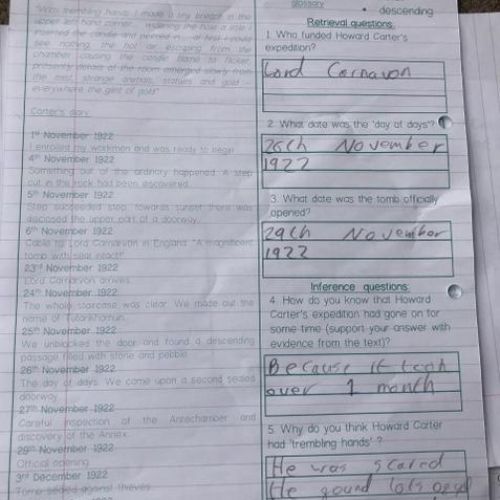 "With trembling hands I made a tiny breach in the
upper left hand corner... widening the hole a little I
inserted the candle and peered in... at first I could
see nothing, the hot air escaping from the
chamber causing the candle flame to flicker,
presently details of the room emerged slowly from
the mist, strange animals, statues and gold –
everywhere the glint of gold"
Carter's diary:
1st November 1922
I enrolled my workmen and was ready to begin
4th November 1922
Something out of the ordinary happened. A step
cut in the rock had been discovered
5th November 1922
Step succeeded step, towards sunset there was
disclosed the upper part of a doorway
6th November 1922
Cable to Lord Carnarvon in England "A magnificent
tomb with seal intact!"
23rd November 1922
Lord Carnarvon arrives
24th November 1922
The whole staircase was clear. We made out the
name of Tutankhamun
25th November 1922
We unblocked the door and found a descending
passage filled with stone and pebble
26th November 1922
The day of days. We came upon a second sealed
doorway
27th November 1922
Careful inspection of the Antechamber and
discovery of the Annex
29th November 1922
Official opening
3rd December 1922
Tomb sealed against thieves
glossary
• descending
Retrieval questions:
1. Who funded Howard Carter's
expedition?
Lord Carnavon
2. What date was the 'day of days'?
26th November
1922
3. What date was the tomb officially
opened?
29th November
1922
Inference questions:
4. How do you know that Howard
Carter's expedition had gone on for
some time (support your answer with
evidence from the text)?
Because it took
over 1 month
5. Why do you think Howard Carter
had 'trembling hands' ?
He was scared
He